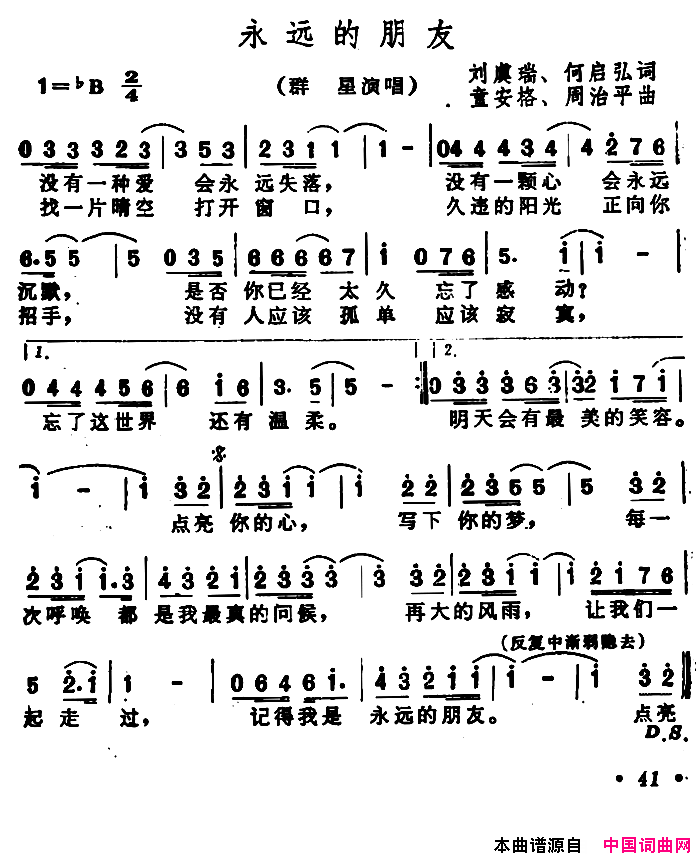 永远的朋友
1=♭B 2/4 （群 星演唱） 刘虞瑞、何启弘词
童安格、周治平曲
0 3 3 3 3 2 3 | 3 5 3 | 2 3 3 1 1 | 1 - | 0 4 4 4 3 4 | 4 2 7 6 |
没有一种爱 会永 远失落， 没有一颗心 会永远
找一片晴空 打开 窗 口， 久违的阳光 正向你
6. 5 5 | 5 0 3 5 | 6 6 6 6 6 7 | i 0 7 6 | 5. i | i - |
沉默， 是否 你已经 太 久 忘了 感 动？
招手， 没有 人应该 孤 单 应该 寂 寞，
1. 2.
0 4 4 4 4 5 6 | 6 i 6 | 3. 5 | 5 - :| 0 3 3 3 3 6 3 | 3 3 2 i 7 i |
忘了这世界 还有 温 柔。 明天会有最 美的笑容。
i - | i 3 2 | 2 3 i i | i 2 2 | 2 3 5 5 | 5 3 2 |
点亮 你的心， 写下 你的梦， 每一
2 3 i i. 3 | 4 3 2 2 i | 2 3 3 3 | 3 3 2 | 2 3 i i | i 2 i 7 6 |
次呼唤 都 是我最真的问候， 再大的风雨， 让我们一
（反复中渐弱隐去）
5 2. i | 1 - | 0 6 4 6 i. | 4 3 2 i i | i - | i 3 2 ‖
起 走 过， 记得我是 永远的朋友。 点亮
D.S.
• 41 •
本曲谱源自 中国词曲网